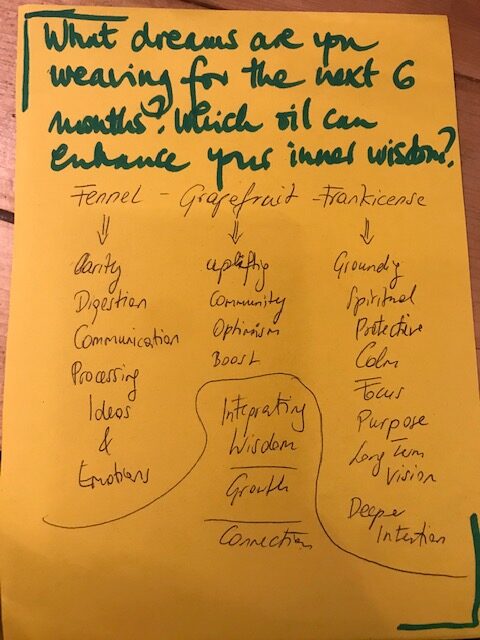 What dreams are you
weaving for the next 6
months? Which oil can
enhance your inner wisdom?
Fennel - Grapefruit - Frankicense
⇓ ⇓ ⇓
Clarity
Digestion
Communication
Processing
Ideas
&
Emotions
uplifting
Community
Optimism
Boost
Integrating
Wisdom
Growth
Connection
Grounding
Spiritual
Protective
Calm
Focus
Purpose
Long Term
Vision
Deeper
Intention